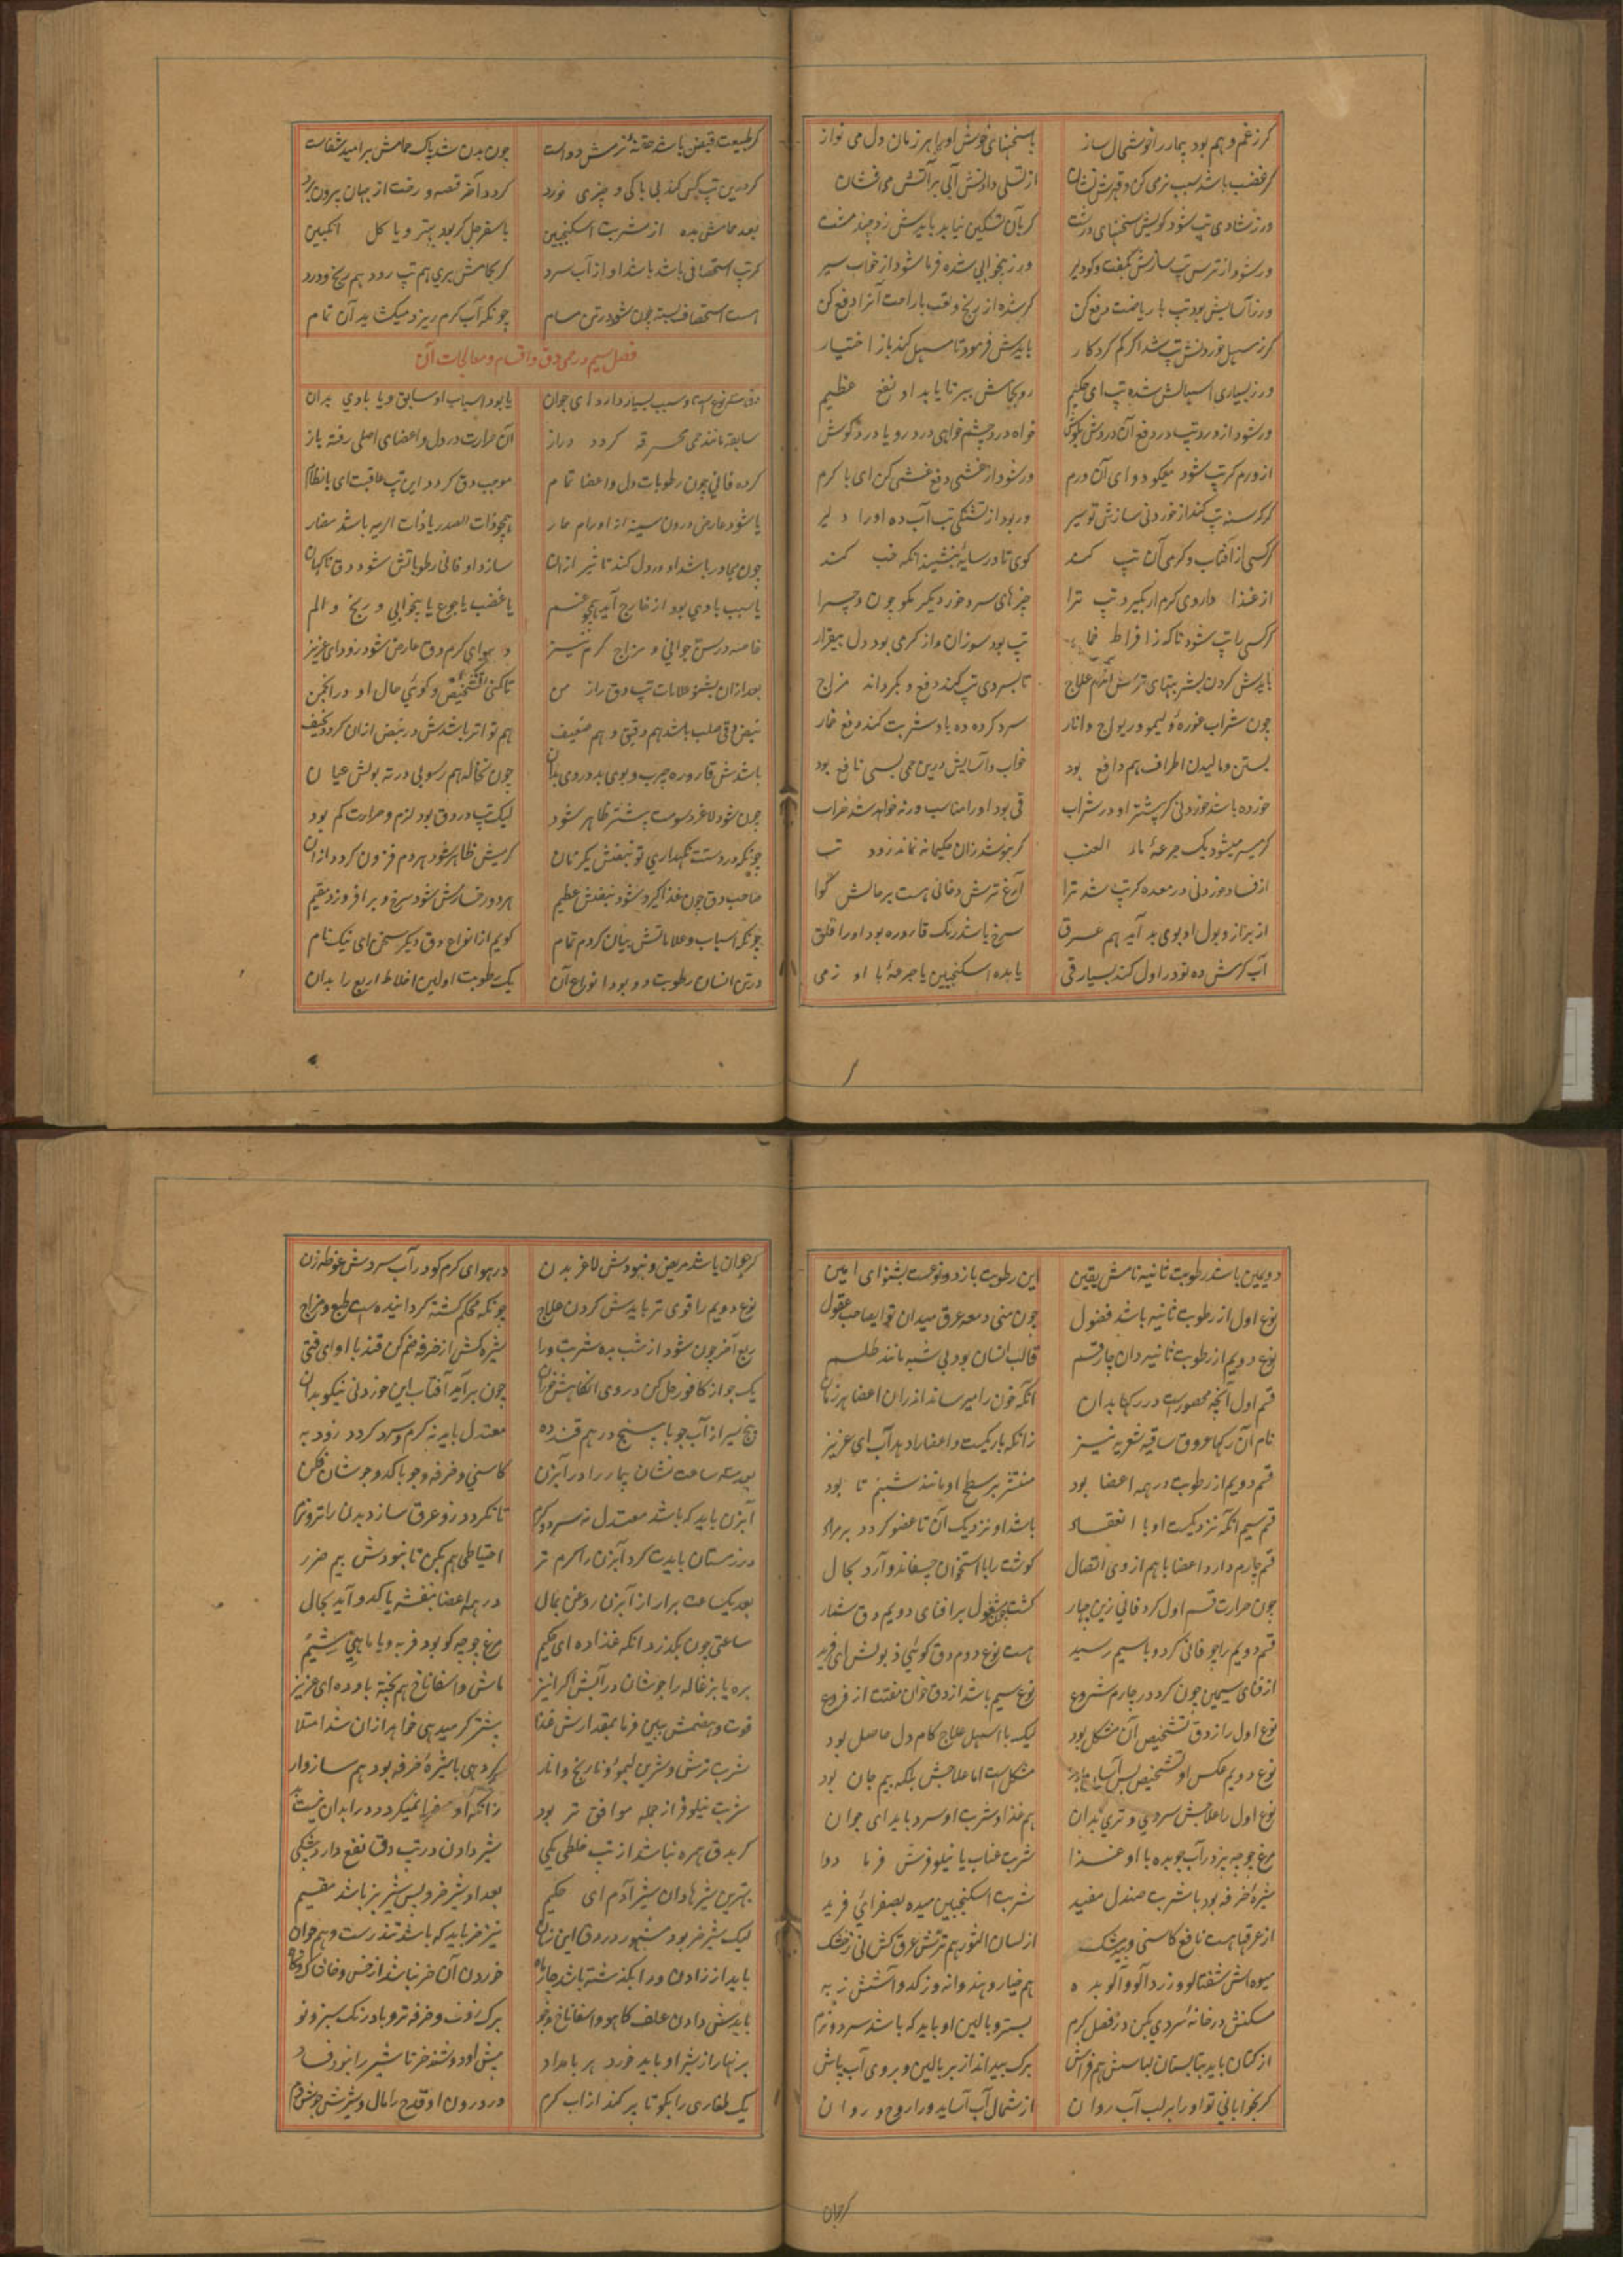 کر زغم و هم بود بیمار را خوشحال ساز باسخنهای خوش او را هر زمان دل می نواز
کر غضب باشد سبب نرمی کن و قهرش نشان از تسلی دادنش آبی بر آتش می فشان
ور زشادی تپ شود کویش سخنهای درشت کر بآن تسکین نیابد بایدش زد چند مشت
ور شود از ترس تپ سازش کیفت و کو دلیر ور زبیخوابی شده فرما شود از خواب سیر
ور زآسایش بود تپ با ریاضت دفع کن کر شده از رنج و تعب با راحت آنرا دفع کن
کر زمسهل خوردنش تپ شد اکر کم کرد کار بایدش فرمود تا مسهل کند باز اختیار
ور زبسیاری اسهالش شده تپ ای حکیم رو بجایش بر تا یابد او نفع عظیم
ور شود از درد تپ در دفع آن دردش بکوش خواه درد چشم خواهی درد رو یا درد کوش
از ورم کر تپ شود میکو دوای آن ورم ور شود از غشی دفع غشی کن ای با کرم
کر کرسنه تپ کند از خوردنی سازش تو سیر ور بود از تشنکی تب آب ده او را دلیر
کر کسی از آفتاب و کرمی آن تپ کند کوی تا در سایه بنشیند انکه خب کند
از غذا داروی کرم ار بکیرد تپ ترا چیزهای سرد خور دیکر مکو چون و چرا
کر کسی را تپ شود ناکه ز افراط خمار تپ بود سوزان و از کرمی بود دل بیقرار
بایدش کردن بشربتهای ترش آندم علاج تا بسردی تپ کند دفع و بکرداند مزاج
چون شراب غوره و لیمو و ریواج و انار سرد کرده ده باو شربت کند دفع خمار
بستن و مالیدن اطراف هم دافع بود خواب و آسایش درین حمی بسی نافع بود
خورده باشد خوردنی کر پیشتر او در شراب قی بود او را مناسب ورنه خواهد شد خراب
کر میسر میشود یک جرعه ماء العنب کر بنوشد زان حکیمانه نماند زود تب
از فساد خوردنی در معده کر تپ شد ترا آرغ ترش دخانی هست بر حالش کوا
از براز و بول او بوی بد آید هم عرق سرخ باشد رنک قاروره بود او را قلق
آب کرمش ده تو در اول کند بسیار قی یا بده اسکنجبین یا جرعه با او ز می
کر طبیعت قبض باشد حقنه نرمش دواست چون بدن شد پاک حمامش بر امید شفاست
کر درین تپ کس کند بی باکی و چیزی خورد کردد آخر قصه و رخت از جهان بیرون برد
بعد حمامش بده از شربت اسکنجبین با سفرجل کر بود بهتر و یا کل انکبین
کر تپ استحصافی باشد باشد او از آب سرد کر بحمامش بری هم تپ رود هم رنج و درد
هست استحصاف بسته چون شود در تن مسام چونکه آب کرم ریزد میکشاید آن تمام
فصل سیم در حمی دق و اقسام و معالجات آن
دق سه نوع است و سبب بسیار دارد ای جوان یا بود اسباب او سابق و یا بادی بدان
سابقه مانند حمی محرقه کردد دراز آن حرارت در دل و اعضای اصلی رفته باز
کرده فانی چون رطوبات دل و اعضا تمام موجب دق کردد این تپ عاقبت ای با نظام
یا شود عارض درون سینه از اورام حار همچو ذات الصدر یا ذات الریه باشد مضار
چون مجاور باشد او در دل کند تاثیر ازان سازد او فانی رطوباتش شود دق ناکهان
یا سبب بادی بود از خارج آید همچو غم یا غضب یا جوع یا بیخوابی و رنج و الم
خاصه در سن جوانی و مزاج کرم نیز در هوای کرم دق عارض شود زود ای عزیز
بعد ازان بشنو علامات تپ دق راز من تا کنی تشخیص و کوئی حال او در انجمن
نبض دقی صلب باشد هم دقیق و هم ضعیف هم تواتر باشدش در نبض ازان کردد نحیف
باشدش قاروره چرب و بوی بد در وی بدان چون نخاله هم رسوبی در ته بولش عیان
چون شود لاغر دسومت بیشتر ظاهر شود لیک تپ در دق بود لازم و حرارت کم بود
چونکه در دستت نکهداری تو نبضش یکزمان کرمیش ظاهر شود هر دم فزون کردد ازان
صاحب دق چون غذا کیرد شود نبضش عظیم هر دو رخسارش شود سرخ و برافروزد مقیم
چونکه اسباب و علاماتش بیان کردم تمام کویم از انواع دق دیکر سخن ای نیک نام
در تن انسان رطوبت دو بود انواع آن یک رطوبت اولین اخلاط اربع را بدان
دویمین باشد رطوبت ثانیه نامش یقین این رطوبت باز دو نوعست بشنو ای امین
نوع اول از رطوبت ثانیه باشد فضول چون منی و معه عرق میدان تو ایصاحب عقول
نوع دویم از رطوبت ثانیه دان چار قسم قالب انسان بود بی شبه مانند طلسم
قسم اول آنچه محصور است در رکها بدان آنکه خون را میرساند اندران اعضا هر زمان
نام آن رکها عروق ساقیه شعریه نیز زانکه باریکست و اعضا را دهد آب ای عزیز
قسم دویم از رطوبت در همه اعضا بود منتشر بر سطح او مانند شبنم تا بود
قسم سیم آنکه نزدیکست او با انعقاد باشد او نزدیک آن تا عضو کردد بر مراد
قسم چارم دارد اعضا با هم از وی اتصال کوشت را با استخوان چسفاند و آرد بحال
چون حرارت قسم اول کرد فانی زین چهار کشت مشغول بر افنای دویم دق شمار
قسم دویم را چو فانی کرد و با سیم رسید هست نوع دوم دق کوئی ذبولش ای فرید
از فنای سیمین چون کرد در چارم شروع نوع سیم باشد از دق خوان مفتت از فروع
نوع اول را ز دق تشخیص آن مشکل بود لیک با اسهل علاج کام دل حاصل بود
نوع دویم عکس او تشخیص بس آسان بود مشکل است اما علاجش بلکه بیم جان بود
نوع اول را علاجش سردی و تری بدان هم غذا و شربت او سرد باید ای جوان
مرغ جوجه پز در آب جو بده با او غذا شربت عناب یا نیلوفرش فرما دوا
شیره خرفه بود با شربت صندل مفید شربت اسکنجبین میده بصفرائی فرید
از عرقها هست نافع کاسنی و بیدمشک از لسان الثور هم ترتیش عرق کش نی ز خشک
میوه اش شفتالو و زردآلو و آلو بده هم خیار و هندوانه وز کدو آشش ز به
مسکنش در خانه سردی بکن در فصل کرم بستر و بالین او باید که باشد سرد و نرم
از کتان باید بتابستان لباسش هم فراش برک بید انداز بر بالین و بر وی آب پاش
کر بخوابانی تو او را بر لب آب روان از شمال آب آساید ورا روح و روان
کر جوان
کر جوان باشد مریض و نبودش لاغر بدن در هوای کرم کو در آب سردش غوطه زن
نوع دویم را قوی تر بایدش کردن علاج چونکه محکم کشته کردانیده است طبع و مزاج
ربع آخر چون شود از شب بده شربت ورا شیره کش از خرفه ضم کن قند با او ای فتی
یک جو از کافور حل کن در وی انکاهش خوران چون برآید آفتاب این خوردنی نیکو بدان
پنج سیر از آب جو با پنج درهم قند ده معتدل باید نه کرم و سرد کردد زود به
بعد سه ساعت نشان بیمار را در آبزن کاسنی و خرفه و جو با کدو جوشان فکن
آبزن باید که باشد معتدل نه سرد و کرم تا نکردد زو عرق سازد بدن را تر و نرم
در زمستان بایدت کرد آبزن را کرم تر احتیاطی هم بکن تا نبودش بیم ضرر
بعد یک ساعت برار از آبزن روغن بمال در همه اعضا بنفشه یا کدو آید بحال
ساعتی چون بکذرد آنکه غذا ده ای حکیم مرغ جوجه کو بود فربه و یا ماهی شیم
بره یا بزغاله را جوشان در آبش اکرا نیز ماش و اسفاناخ هم پخته باو ده ای عزیز
قوت و هضمش ببین فرما بمقدارش غذا بیشتر کر میدهی خواهد ازان شد امتلا
شربت ترش و شیرین لیمو و نارنج و انار کر دهی با شیره خرفه بود هم سازوار
شربت نیلوفر از جمله موافق تر بود زانکه او صفرا نمیکردد در ابدان
کر بدق همره نباشد از تب خلطی یکی شیر دادن در تپ دق نفع دارد بیشکی
بهترین شیرها دان شیر آدم ای حکیم بعد او شیر خر و پس شیر بز باشد مقیم
لیک شیر خر بود مشهور در دق این زمان نیز خر باید که باشد تندرست و هم جوان
باید از زادن ورا بکذشته باشد چار ماه خوردن آن خر نباشد از خس و خاک و کیاه
بایدش دادن علف کاهو و اسفاناخ و جو برک رونه و خرفه تر و بادرنک سبز و نو
برنهار از شیر او باید خورد هر بامداد پیش او دوشند خر تا شیر را نبود فساد
یک طغاری را بکو تا پر کند از آب کرم در درون او قدح را مال و شیرش جوش نرم